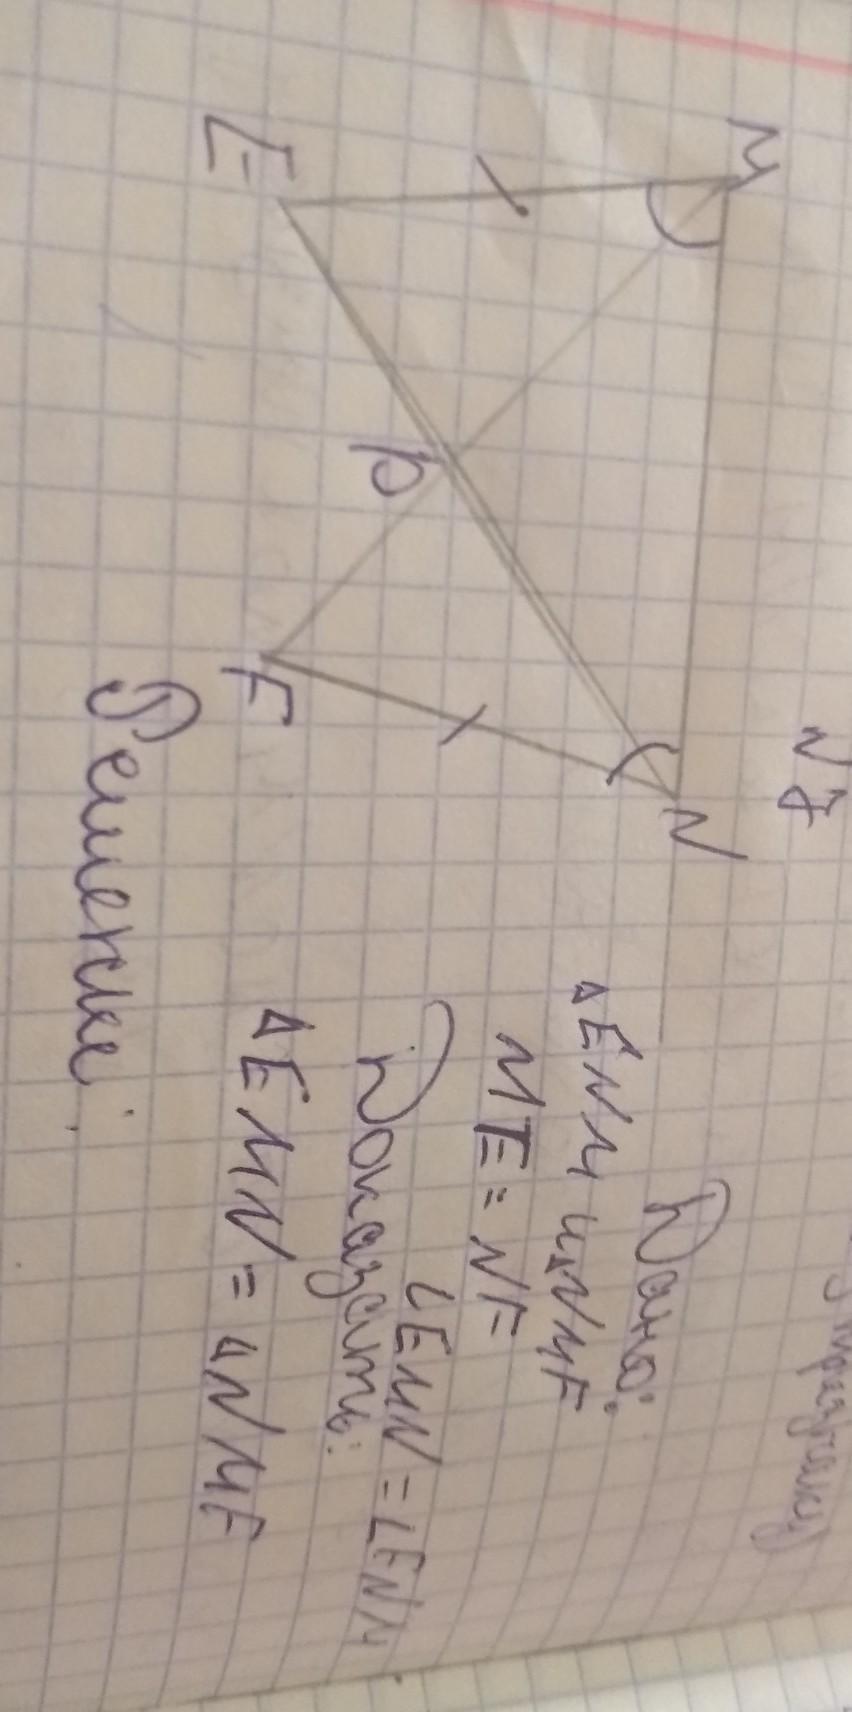 N 7
M
N
E
P
F
Дано:
△ENM и △NMF
ME = NF
∠EMN = ∠ENM
Доказать:
△EMN = △NMF
Решение: